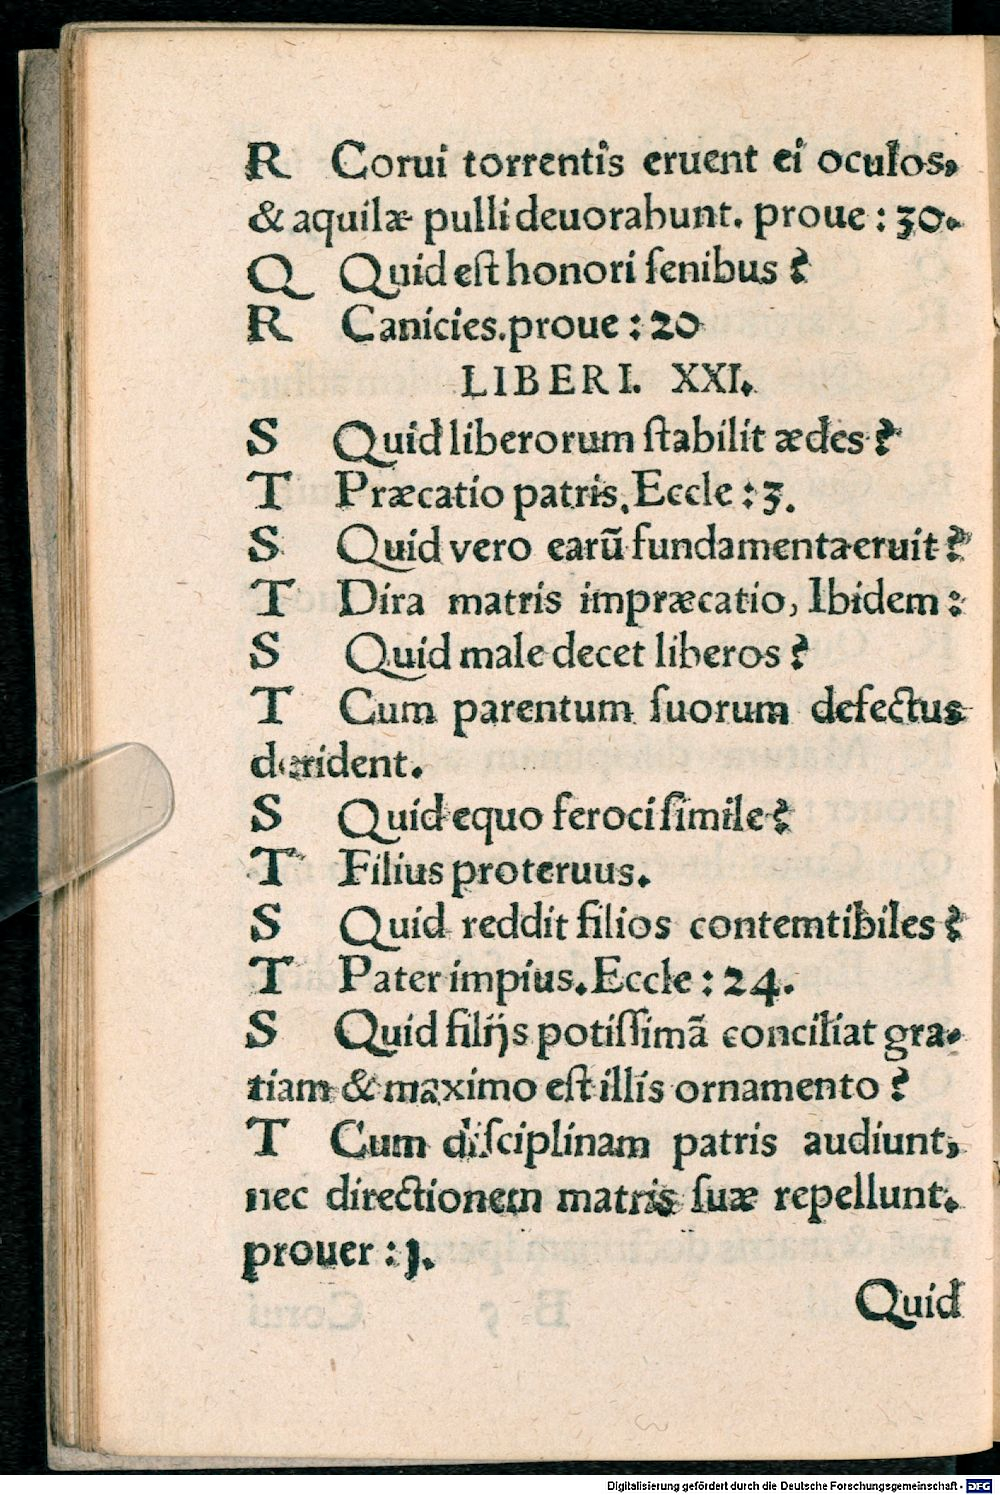 R Corui torrentis eruent ei oculos,
& aquilæ pulli deuorabunt. proue : 30.
Q Quid est honori senibus ?
R Canicies. proue : 20
LIBERI. XXI.
S Quid liberorum stabilit ædes ?
T Præcatio patris. Eccle : 3.
S Quid vero earũ fundamenta eruit ?
T Dira matris impræcatio, Ibidem :
S Quid male decet liberos ?
T Cum parentum suorum defectus
derident.
S Quid equo feroci simile ?
T Filius proteruus.
S Quid reddit filios contemtibiles ?
T Pater impius. Eccle : 24.
S Quid filijs potissimã conciliat gra-
tiam & maximo est illis ornamento ?
T Cum disciplinam patris audiunt,
nec directionem matris suæ repellunt.
prouer : 1.
Quid
Digitalisierung gefördert durch die Deutsche Forschungsgemeinschaft - DFG